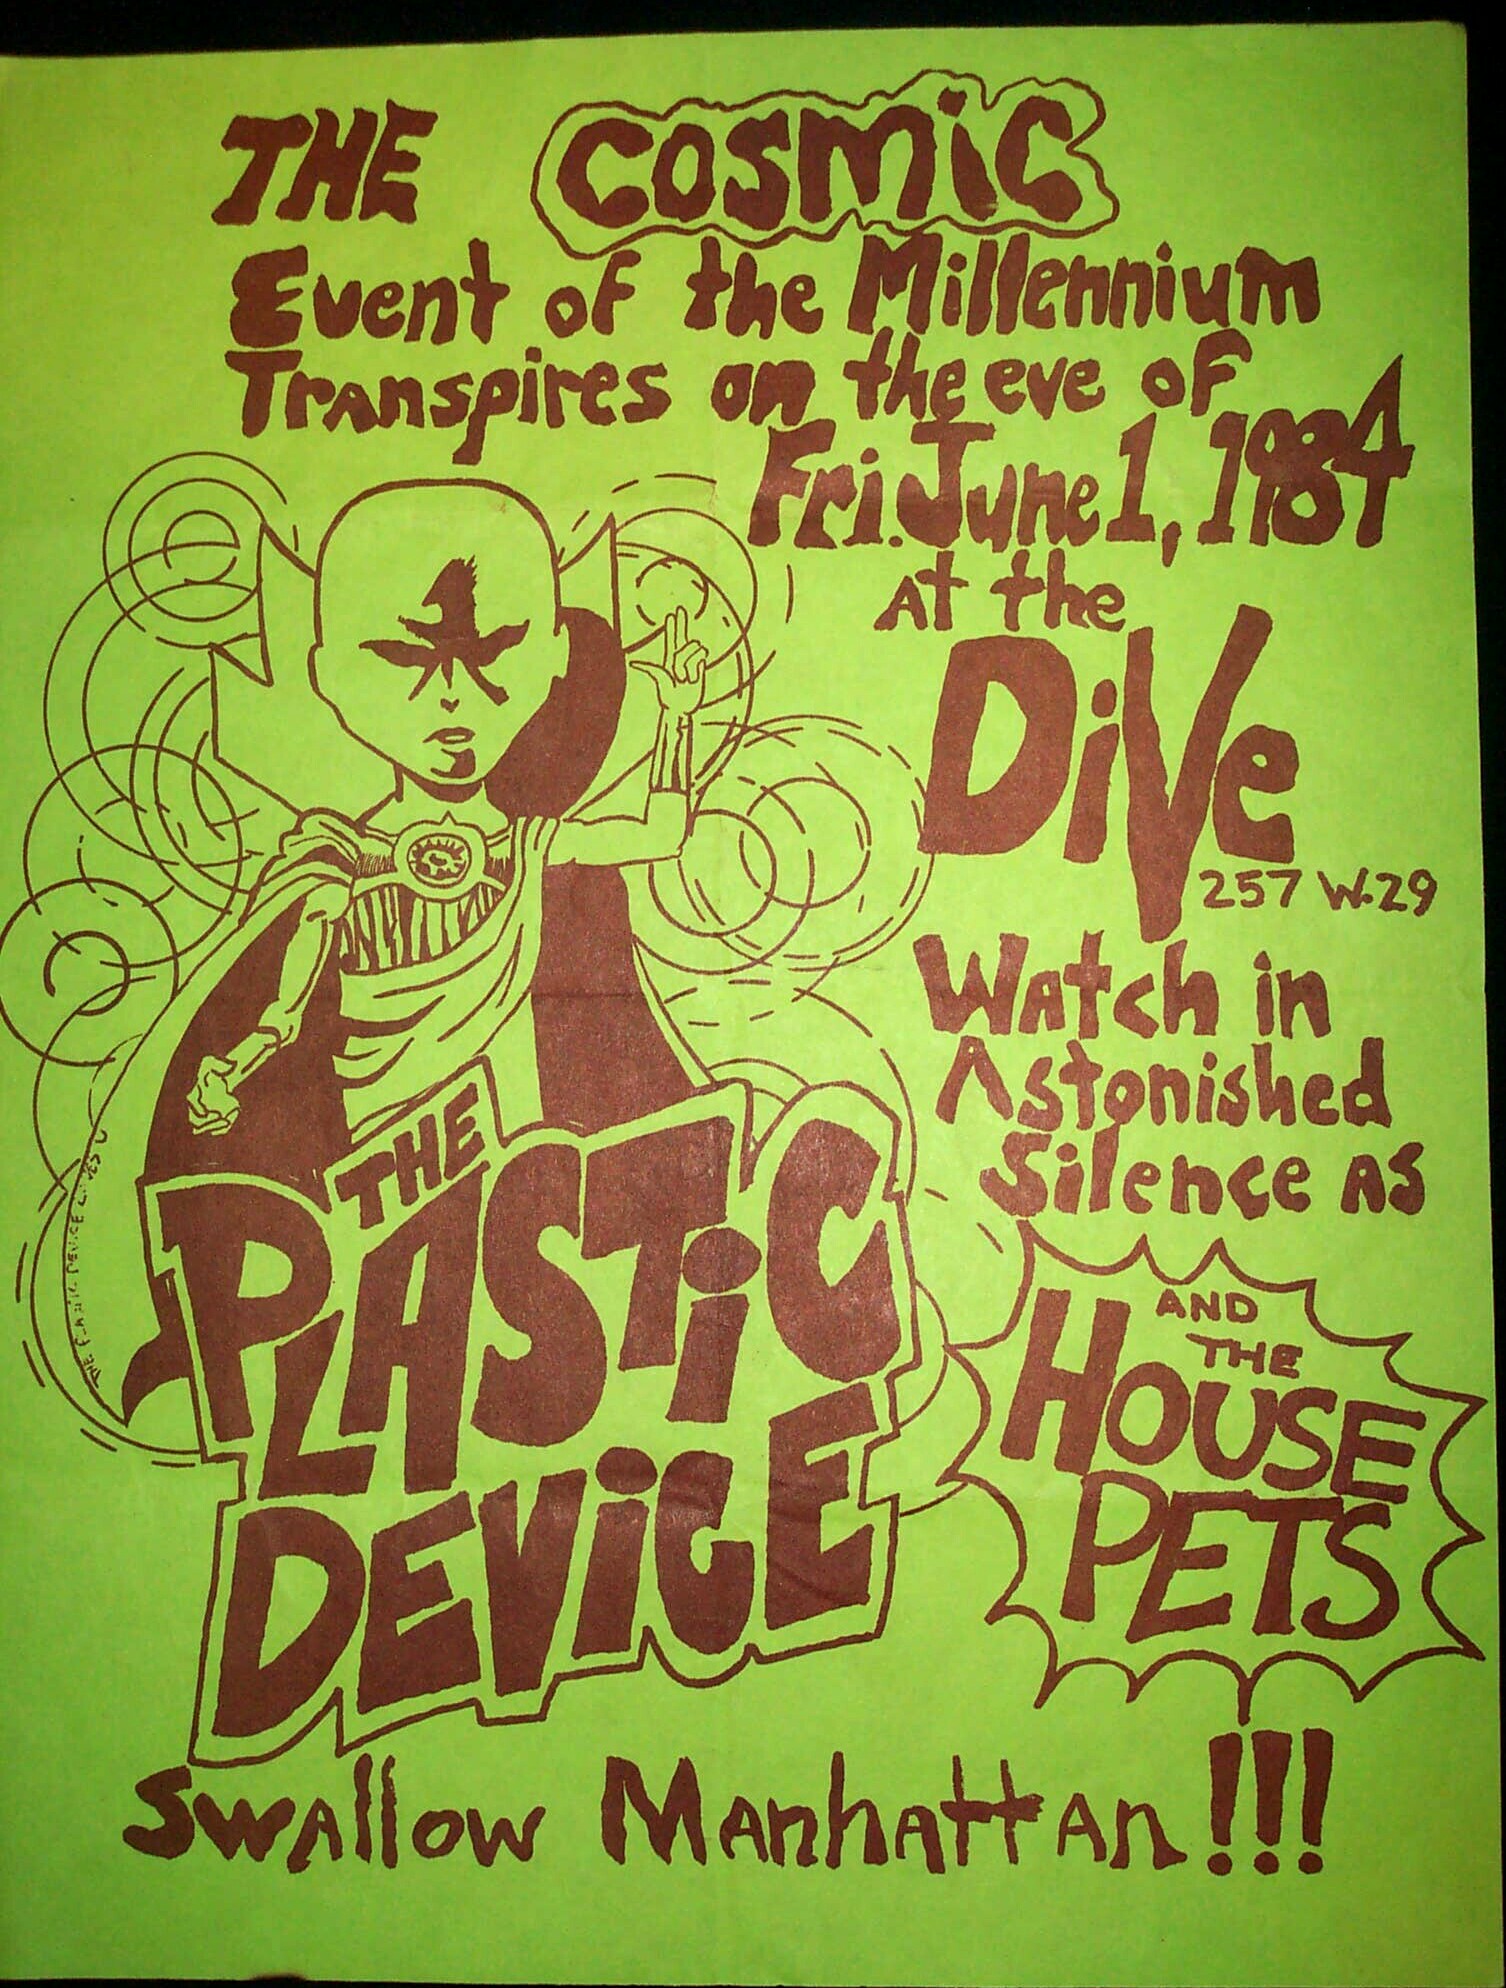 THE COSMiC
Event of the Millennium
Transpires on the eve of
Fri. June 1, 1984
At the
DiVe
257 W. 29
Watch in
Astonished
Silence As
THE
PLASTiC
DEViCE
AND
THE
HOUSE
PETS
Swallow Manhattan!!!